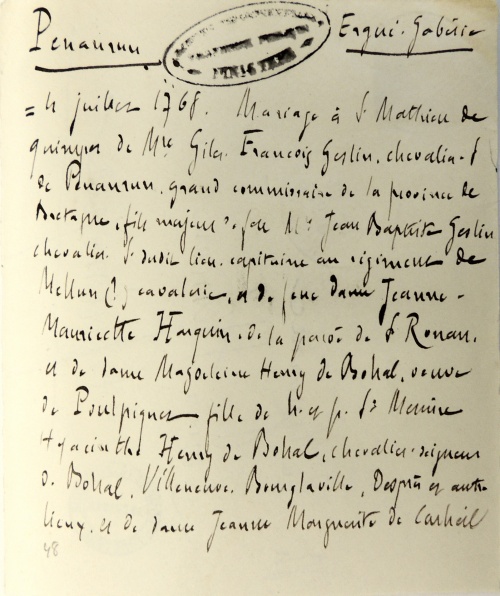 Penanrun Ergué-Gabéric
FINISTÈRE
= 4 juillet 1768. Mariage à St Mathieu de
quimper de Mre Giles François Geslin, chevalier Sr
de Penanrun, grand commissaire de la province de
Bretagne, fils majeur de feu Mre Jean Baptiste Geslin
chevalier Sr dudit lieu, capitaine au régiment de
Mellun (?) cavalerie, et de feue dame Jeanne-
Mauricette Harquin, de la paroisse de St Renan,
et de dame Magdeleine Henry de Bohal, veuve
de Poulpiquet fille de h. et p. Sr Messire
Hyacinthe Henry de Bohal, chevalier-seigneur
de Bohal, Villeneuve, Bourglaville, et autres
lieux, et de dame Jeanne Marguerite de Carheil
48